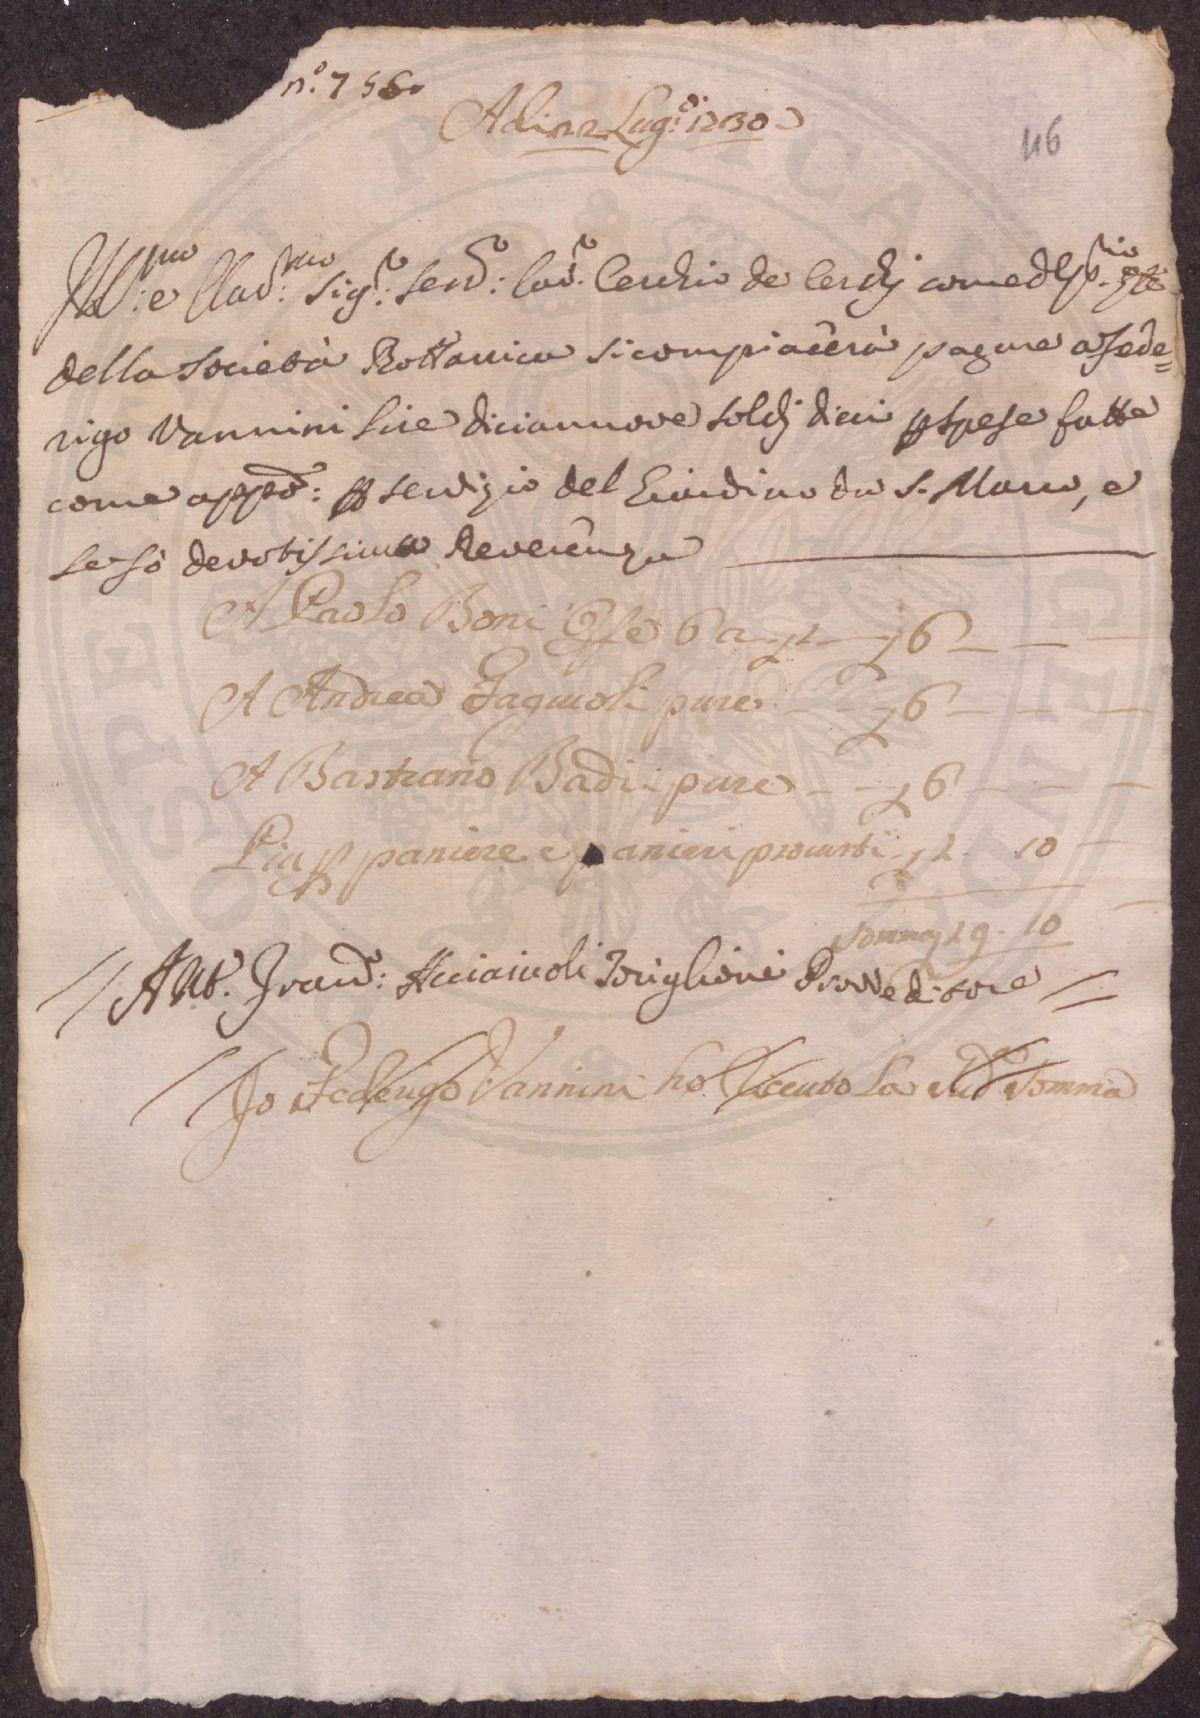 n.º 756.
Adi 12 Lug.º 1730
46
Ill.mo e Clar.mo Sig.r Sen.r Cav.r Cerchio de Cerchj come
della Società Bottanica si compiacerà pagare a Fede=
rigo Vannini lire diciannove soldj dieci p spese fatte
come app.o: p servizio del Giardino da S. Marco, e
le fò devotissima Reverenza
A Paolo Boni Op.e 6 a £ 1 £ 6
A Andrea Fagiuoli pure £ 6
A Bastiano Badi pure £ 6
Piu p paniere e panieri provvisti £ 1. 10
Somma £ 19. 10
Ant. Fran.º: Acciaiuoli Toriglioni Provveditore
Io Federigo Vannini ho Riceuto La Sud.a Somma
OSPEDALE